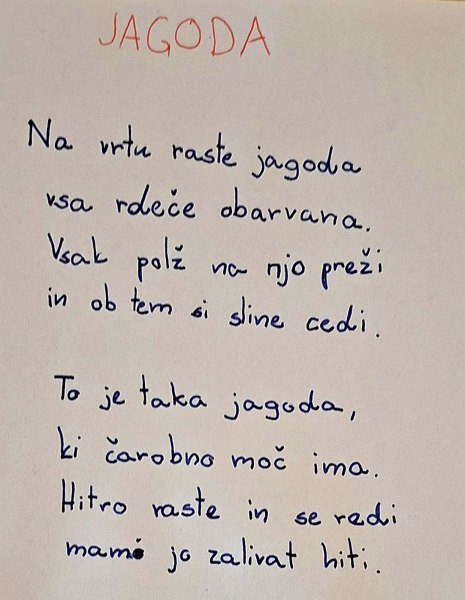 JAGODA
Na vrtu raste jagoda
vsa rdeče obarvana.
Vsak polž na njo preži
in ob tem si sline cedi.
To je taka jagoda,
ki čarobno moč ima.
Hitro raste in se redi
mami jo zalivat hiti.